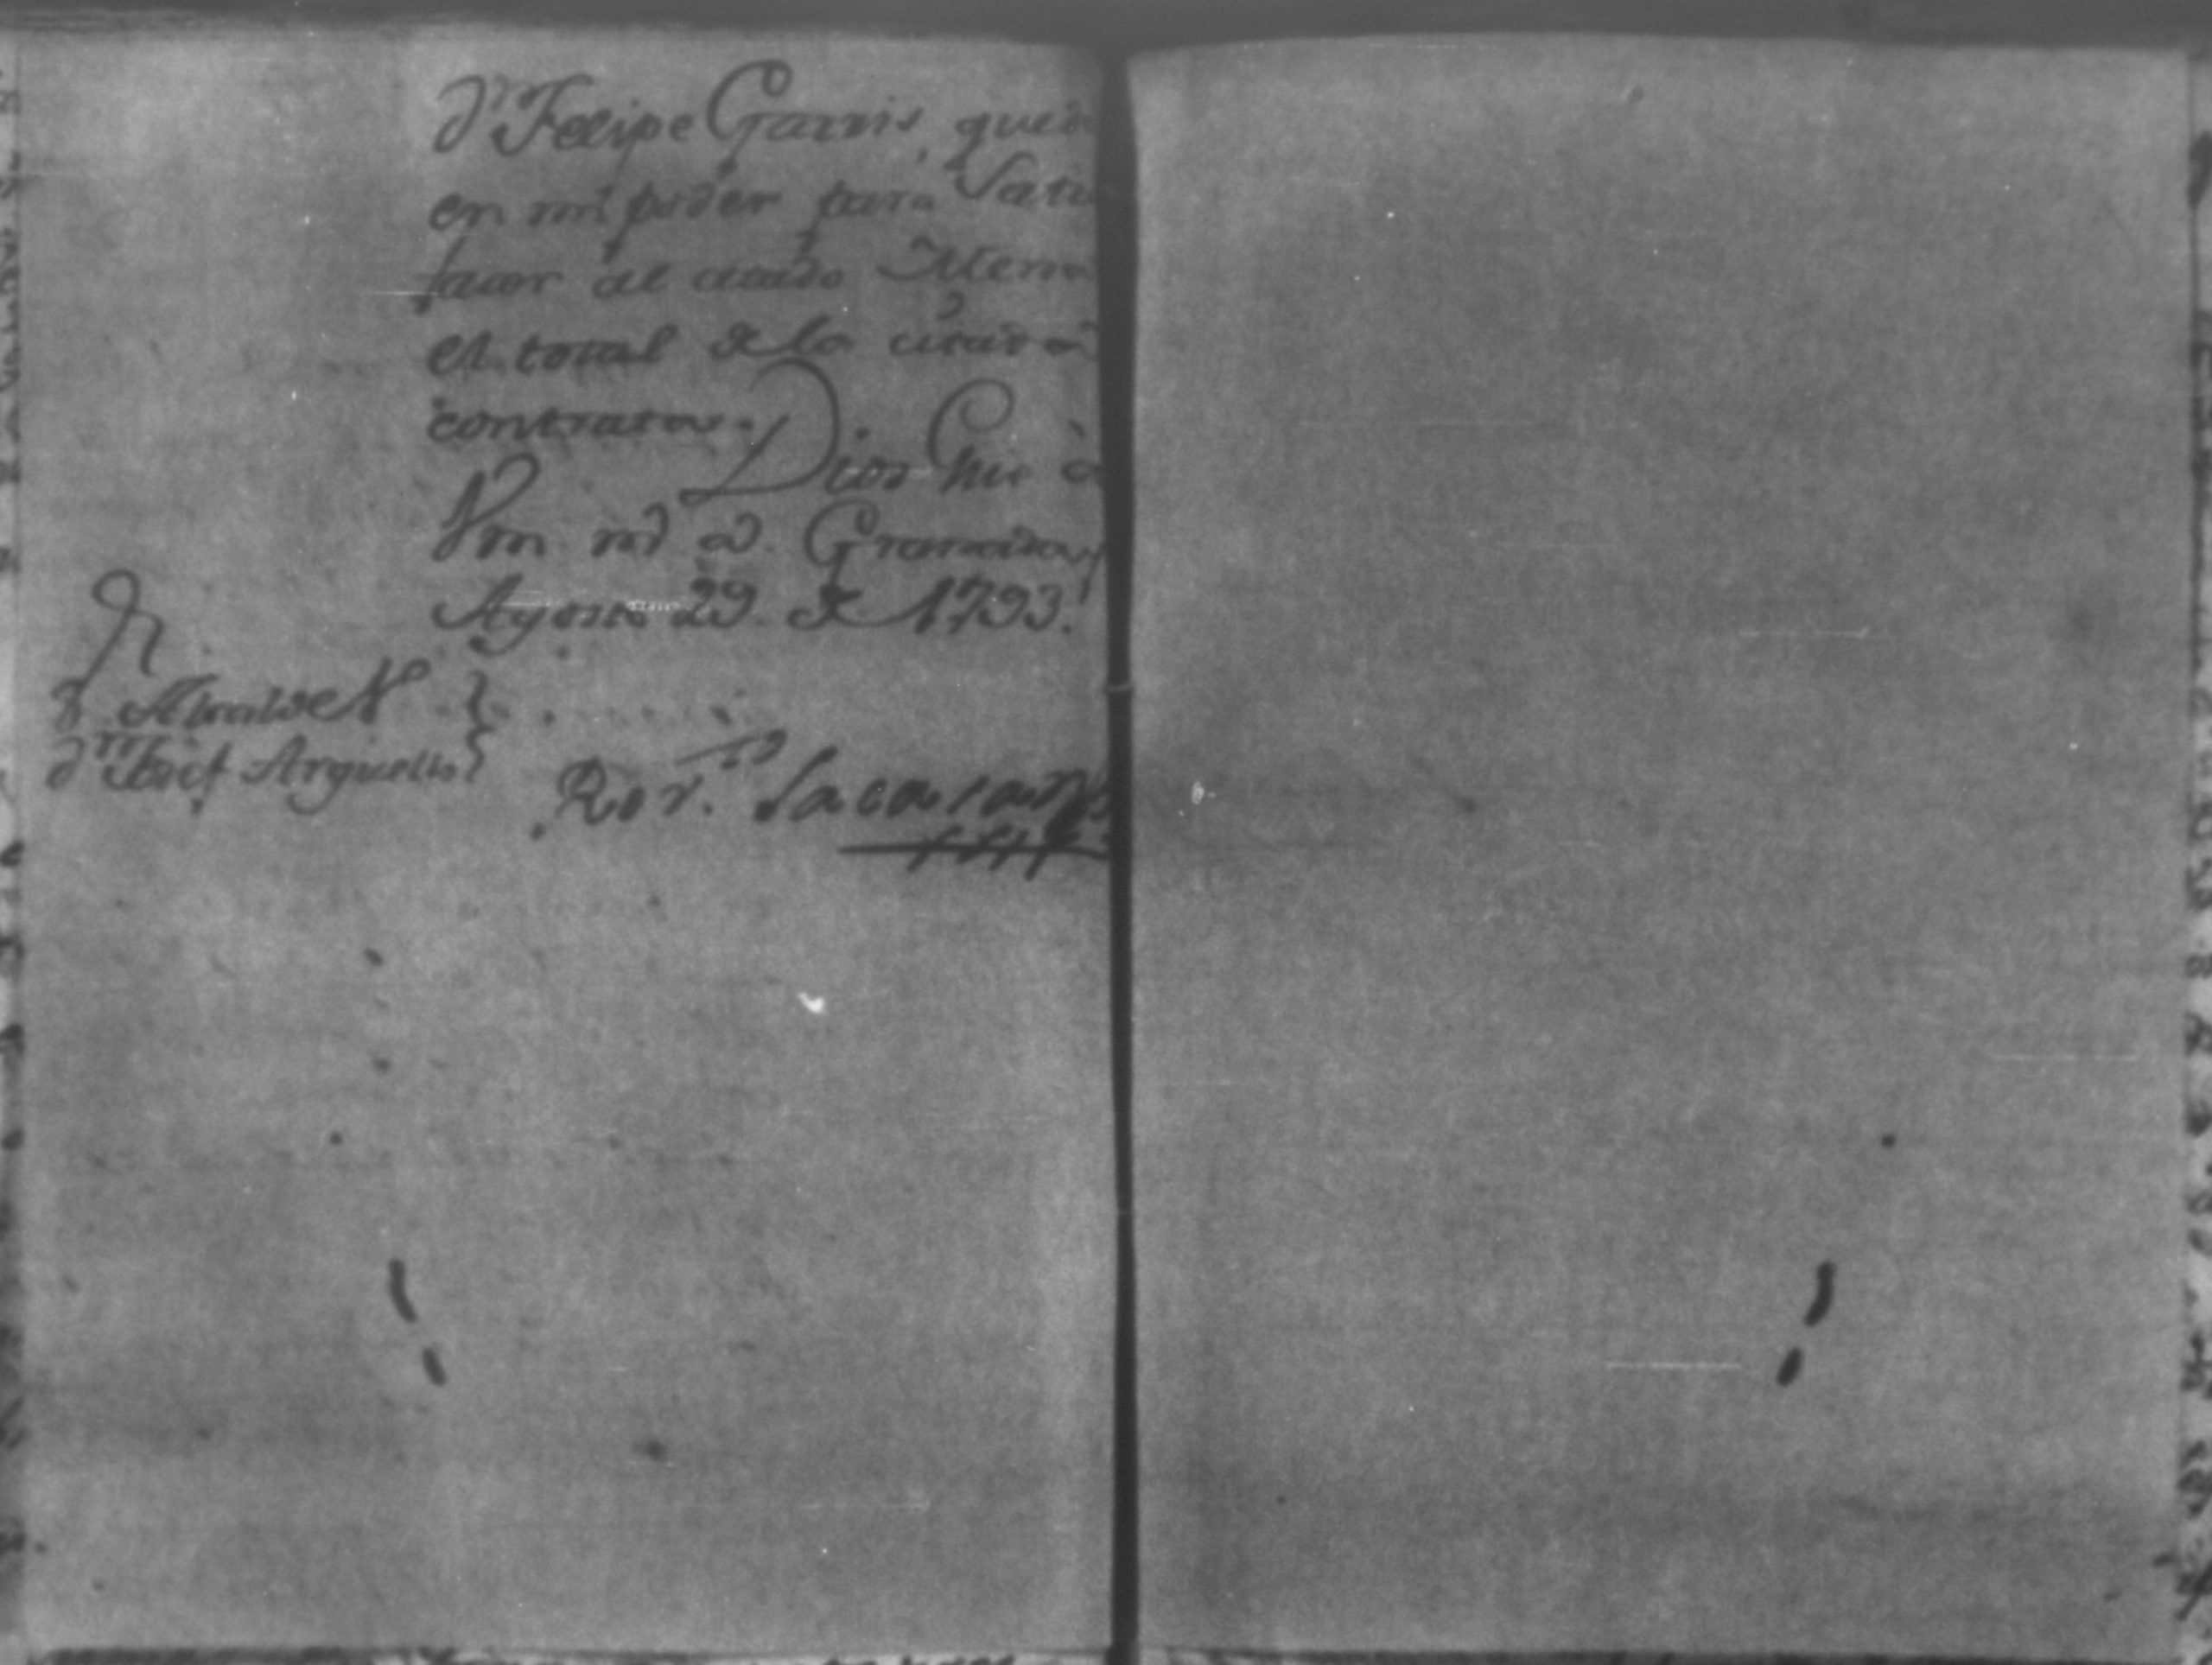 Dn Felipe Gamis, queda
en mi poder para Satis
facer al citado Mena
el total de la citada
contrata. Dios Gue à
Vm ms as. Granada, y
Agosto 29. de 1793.
Sr
Alcalde
Dn Josef Arguello
Rovto Sacasa